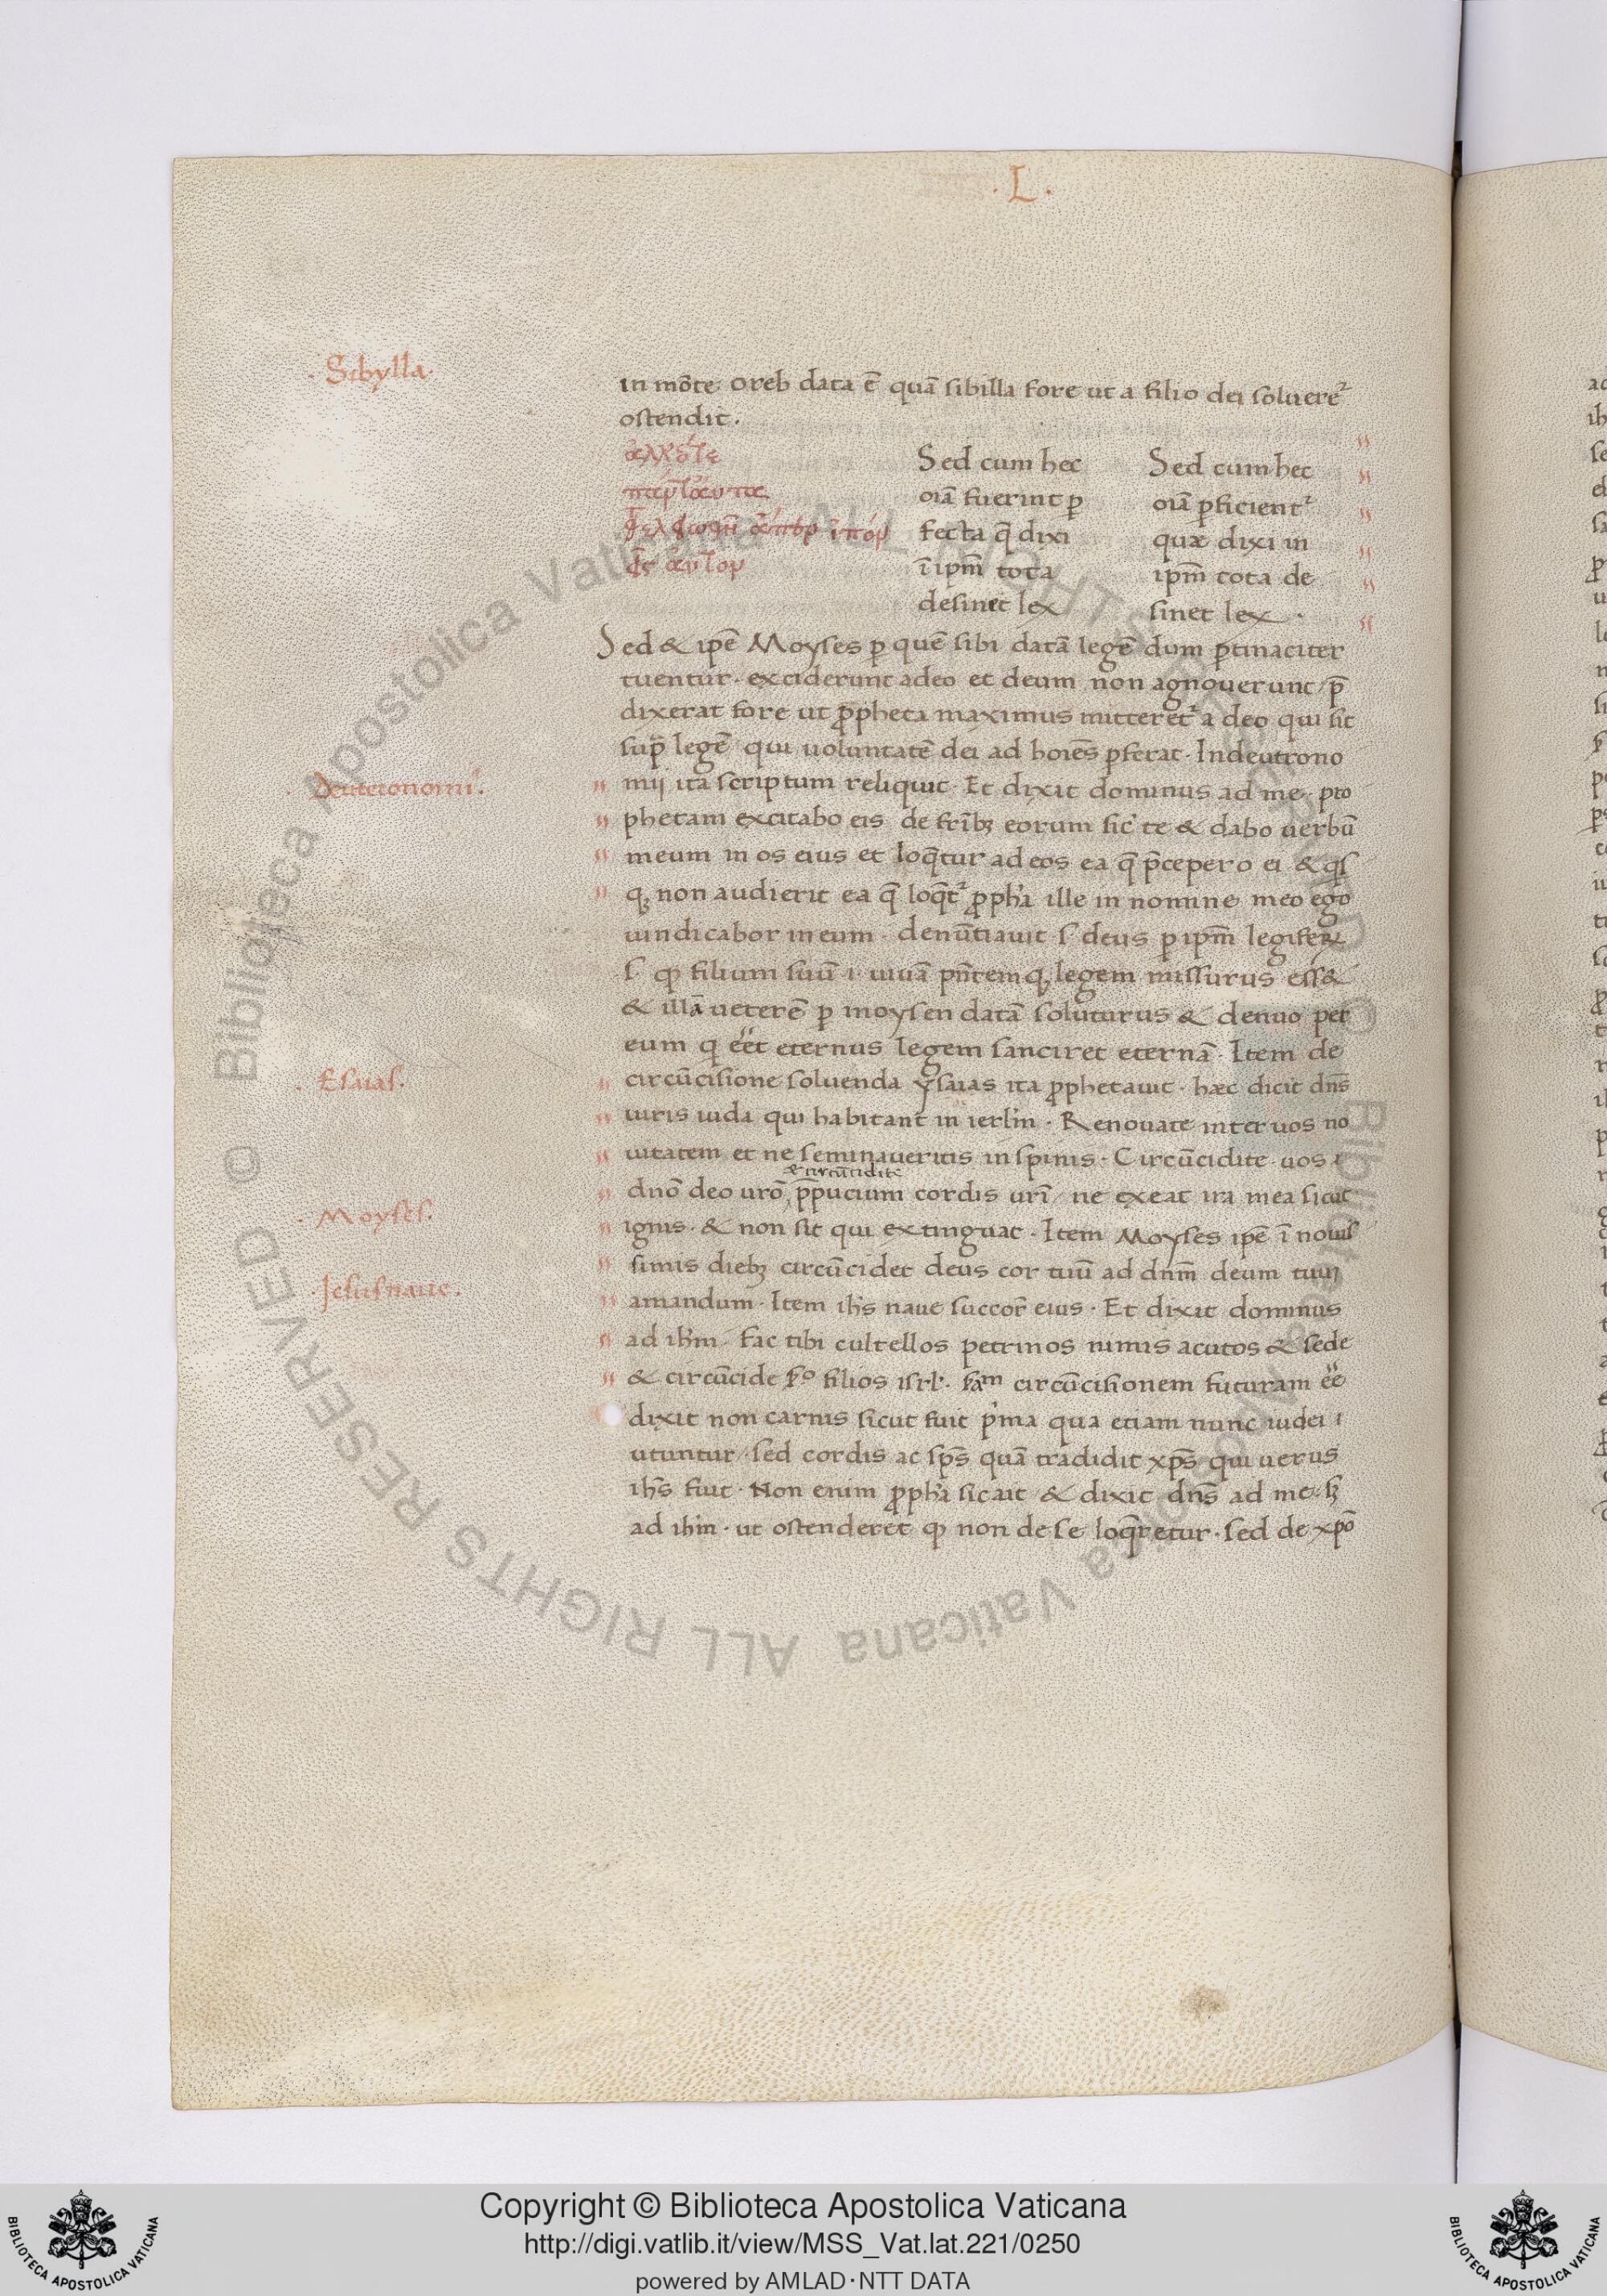 . L .
. Sibylla .
in mõte oreb data ẽ quã sibilla fore ut a filio dei soluere᷑
ostendit .
Sed cum hec
oīa fuerint ꝑ
fecta q̄ dixi
ī ipm̄ tota
desinet lex
Sed cum hec
oīa ꝑficient᷑
quæ dixi in
ipm̄ tota de
sinet lex .
Sed & ipē Moyses ꝑ quē sibi datã legē dum ꝑtinaciter
tuentur . exciderunt a deo et deum non agnouerunt / p̄
dixerat fore ut ꝓpheta maximus mitteret᷑ a deo qui sit
sup̄ legē qui uoluntatē dei ad hoiēs ꝑferat . In deutrono
. Deuteronomi .
mij ita scriptum reliquit . Et dixit dominus ad me . pro
phetam excitabo eis de fr̄ibꝫ eorum sic̄ te & dabo uerbū
meum in os eius et loq̄tur ad eos ea q̄ p̄cepero ei & q̇s
qꝫ non audierit ea q̄ loq̄t᷑ ꝓph̄a ille in nomine meo ego
uindicabor in eum . denūtiauit . s . deus ꝑ ipm̄ legiferꝝ
. s . ꝙ filium suū . i . uiuã p̄ntemqꝫ legem missurus ess&
& illã ueterē ꝑ moysen datã soluturus & denuo per
eum q̇ e̋et eternus legem sanciret eternã . Item de
. Esaias .
circūcisione soluenda ysaias ita ꝓphetauit . hæc dicit dn̄s
uiris iuda qui habitant in ierl̄m . Renouate inter uos no
uitatem et ne seminaueritis in spinis . Circūcidite uos
& circūcidite
dnõ deo urõ p̄pucium cordis urī / ne exeat ira mea sicut
. Moyses .
ignis . & non sit qui extinguat . Item Moyses ipē ī nouis
simis diebꝫ circūcidet deus cor tuū ad dn̄m deum tuuꝫ
. Jesus naue .
amandum . Item ih̄s naue succor̄ eius . Et dixit dominus
ad ih̄m . Fac tibi cultellos petrinos nimis acutos & sede
& circūcide ẜo filios isrl̄ . ẜam circūcisionem futuram e̋e
dixit non carnis sicut fuit p̄ma qua etiam nunc iudei
utuntur / sed cordis ac sp̄s quã tradidit xp̄s qui uerus
ih̄s fuit . Non enim ꝓph̄a sic ait & dixit dn̄s ad me . sꝫ
ad ih̄m . ut ostenderet ꝙ non de se loq̄retur . sed de xp̄o
© Biblioteca Apostolica Vaticana ALL RIGHTS RESERVED
Copyright © Biblioteca Apostolica Vaticana
http://digi.vatlib.it/view/MSS_Vat.lat.221/0250
powered by AMLAD·NTT DATA
BIBLIOTECA APOSTOLICA VATICANA
BIBLIOTECA APOSTOLICA VATICANA